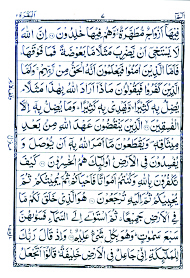 البقرة
فِيْهَاۤ اَزْوَاجٌ مُّطَهَّرَةٌ وَّهُمْ فِيْهَا خٰلِدُوْنَ اِنَّ اللّٰهَ
لَا يَسْتَحْيٖۤ اَنْ يَّضْرِبَ مَثَلًا مَّا بَعُوْضَةً فَمَا فَوْقَهَا
فَاَمَّا الَّذِيْنَ اٰمَنُوْا فَيَعْلَمُوْنَ اَنَّهُ الْحَقُّ مِنْ رَّبِّهِمْ وَاَمَّا
الَّذِيْنَ كَفَرُوْا فَيَقُوْلُوْنَ مَاذَاۤ اَرَادَ اللّٰهُ بِهٰذَا مَثَلًا
يُضِلُّ بِهٖ كَثِيْرًا وَّيَهْدِيْ بِهٖ كَثِيْرًا وَمَا يُضِلُّ بِهٖۤ اِلَّا
الْفٰسِقِيْنَ الَّذِيْنَ يَنْقُضُوْنَ عَهْدَ اللّٰهِ مِنْۢ بَعْدِ
مِيْثَاقِهٖ وَيَقْطَعُوْنَ مَاۤ اَمَرَ اللّٰهُ بِهٖۤ اَنْ يُّوْصَلَ وَ
يُفْسِدُوْنَ فِي الْاَرْضِ اُولٰٓئِكَ هُمُ الْخٰسِرُوْنَ كَيْفَ
تَكْفُرُوْنَ بِاللّٰهِ وَكُنْتُمْ اَمْوَاتًا فَاَحْيَاكُمْ ثُمَّ يُمِيْتُكُمْ ثُمَّ
يُحْيِيْكُمْ ثُمَّ اِلَيْهِ تُرْجَعُوْنَ هُوَ الَّذِيْ خَلَقَ لَكُمْ مَّا
فِي الْاَرْضِ جَمِيْعًا ثُمَّ اسْتَوٰۤى اِلَى السَّمَآءِ فَسَوّٰىهُنَّ
سَبْعَ سَمٰوٰتٍ وَهُوَ بِكُلِّ شَيْءٍ عَلِيْمٌ وَاِذْ قَالَ رَبُّكَ
لِلْمَلٰٓئِكَةِ اِنِّيْ جَاعِلٌ فِي الْاَرْضِ خَلِيْفَةً قَالُوْۤا اَتَجْعَلُ